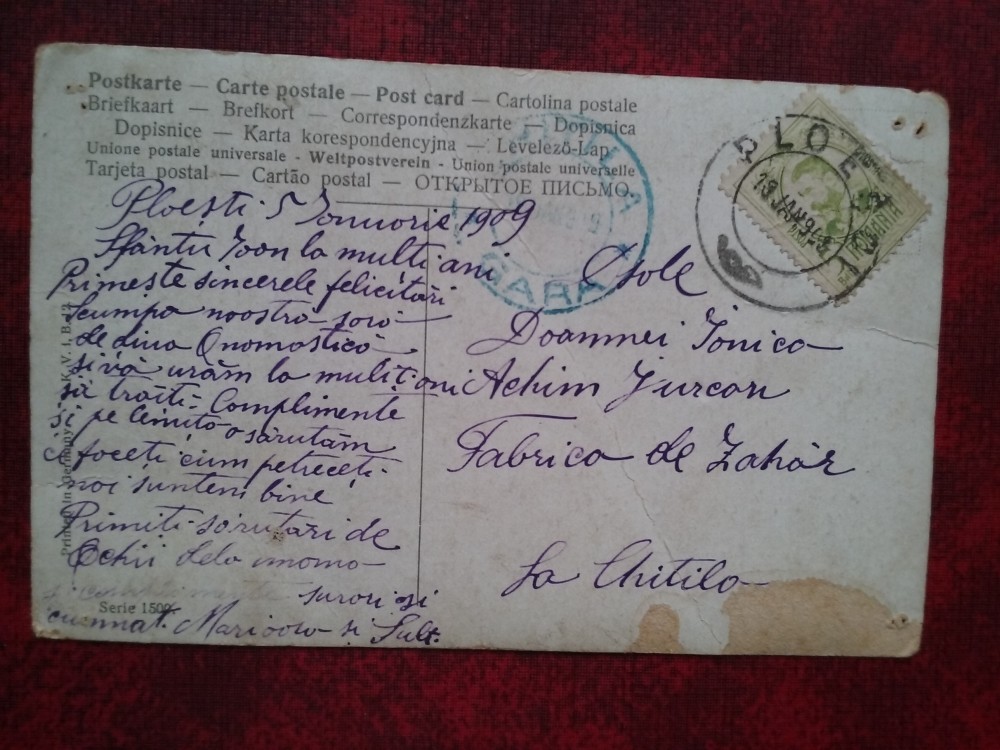 Postkarte — Carte postale — Post card — Cartolina postale
Briefkaart — Brefkort — Correspondenzkarte — Dopisnica
Dopisnice — Karta korespondencyjna — Levelező-Lap
Unione postale universale - Weltpostverein - Union postale universelle
Tarjeta postal — Cartão postal — ОТКРЫТОЕ ПИСЬМО.
PLOESCI
13 JAN 94
GARA
Ploești 5 Ianuarie 1909
Sfântu Ioan la multi ani
Primește sincerele felicitări
Scumpa noastră soră
de diua Onomastică
si vă urăm la multi ani
să trăiti Complimente
și pe Lenuta o sărutăm
ce faceti cum petreceti
noi suntem bine
Primiti sărutări de
mama
surori și
cumnat. Marioara si Sult.
D-sale
Doamnei Ionica
Achim Jurcan
Fabrica de Zahăr
La Chitila
Printed in Germany
Serie 1509.